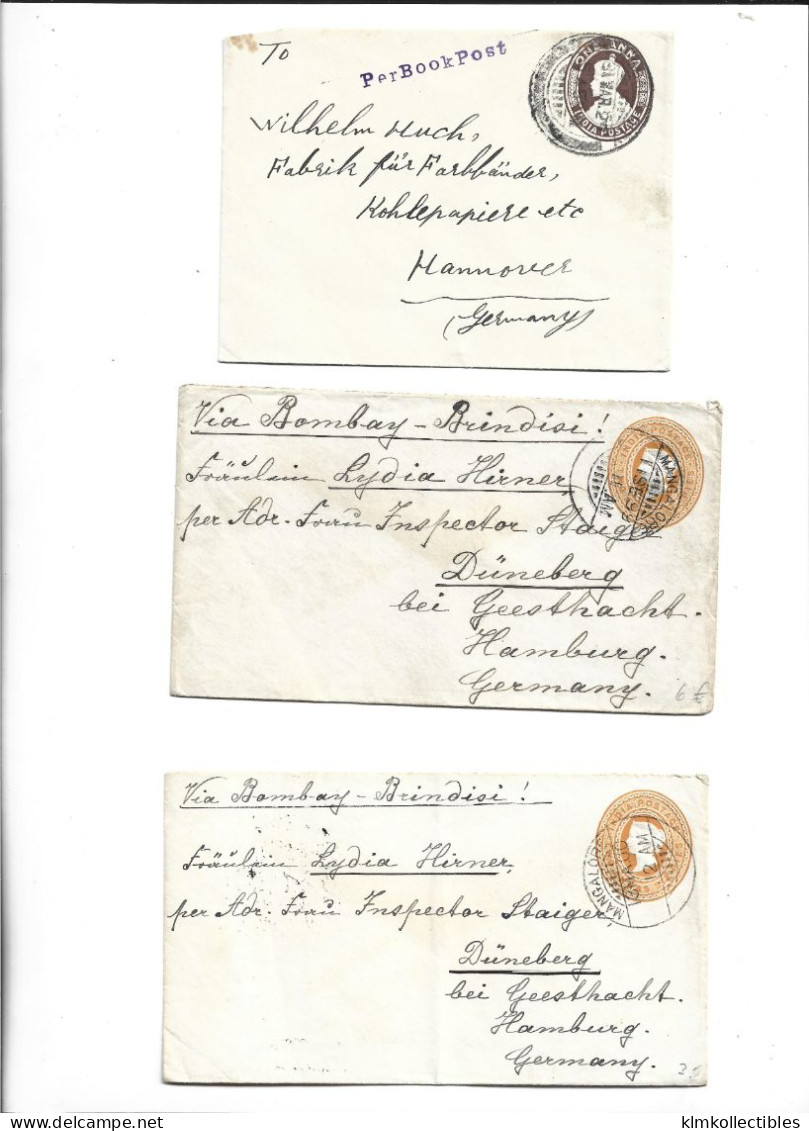 To
Per Book Post
ONE ANNA
INDIA POSTAGE
31 MAR. 2
Wilhelm Huch,
Fabrik für Farbbänder,
Kohlepapiere etc
Hannover
(Germany)
Via Bombay – Brindisi!
INDIA POSTAGE
MANGALORE
SE
AM
Fräulein Lydia Hirner,
per Adr. Frau Inspector Staiger
Düneberg
bei Geesthacht.
Hamburg.
Germany.
6 €
Via Bombay – Brindisi!
INDIA POSTAGE
MANGALORE
AM
Fräulein Lydia Hirner,
per Adr. Frau Inspector Staiger,
Düneberg
bei Geesthacht.
Hamburg.
Germany.
klmkollectibles